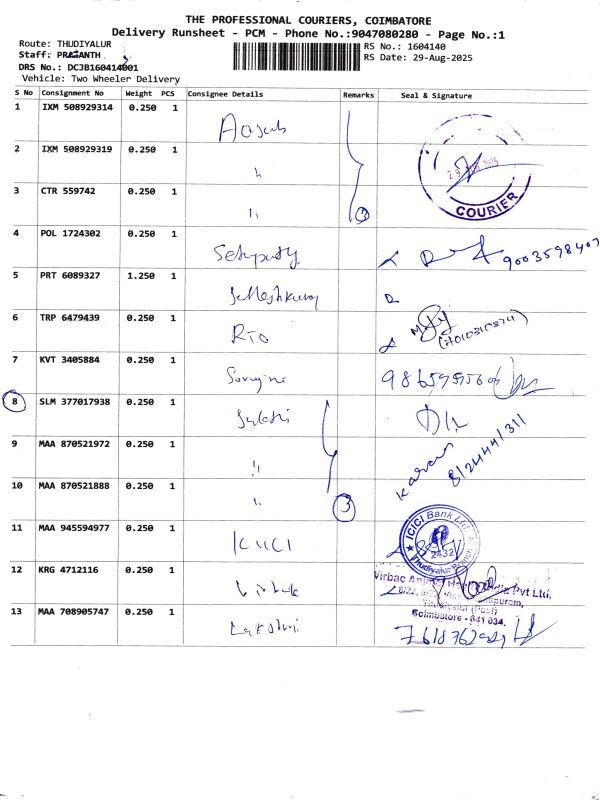 THE PROFESSIONAL COURIERS, COIMBATORE
Delivery Runsheet - PCM - Phone No.:9047080280 - Page No.:1
Route: THUDIYALUR
Staff: PRASANTH
DRS No.: DCJB160414001
Vehicle: Two Wheeler Delivery
RS No.: 1604140
RS Date: 29-Aug-2025
S No Consignment No Weight PCS Consignee Details Remarks Seal & Signature
1 IXM 508929314 0.250 1
2 IXM 508929319 0.250 1 "
3 CTR 559742 0.250 1 "
COURIER
4 POL 1724302 0.250 1
5 PRT 6089327 1.250 1
6 TRP 6479439 0.250 1 RTO
7 KVT 3405884 0.250 1
8 SLM 377017938 0.250 1
9 MAA 870521972 0.250 1 "
10 MAA 870521888 0.250 1 " 3
11 MAA 945594977 0.250 1 ICICI
ICICI Bank Ltd.
2432
Thudiyalur Branch
12 KRG 4712116 0.250 1
Virbac Pvt Ltd.
Coimbatore - 641 034.
13 MAA 708905747 0.250 1 Lakshmi